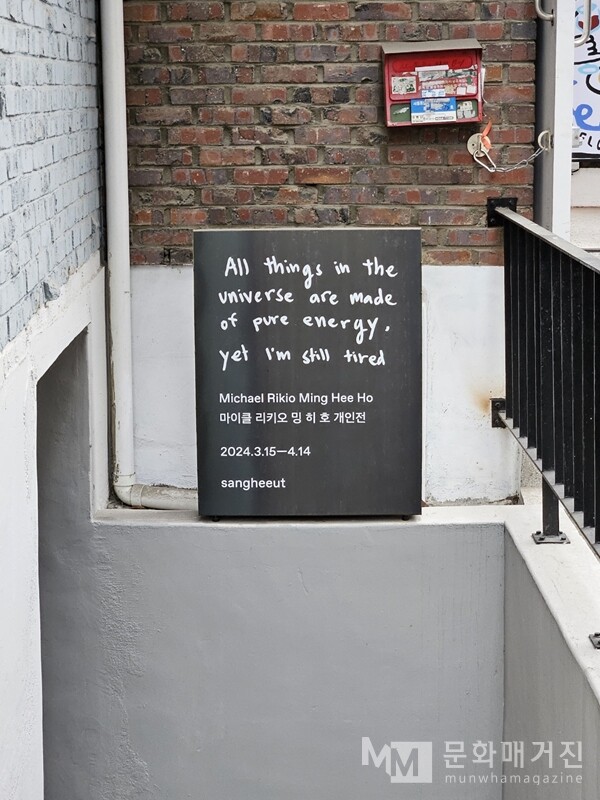 All things in the
universe are made
of pure energy,
yet I'm still tired
Michael Rikio Ming Hee Ho
마이클 리키오 밍 히 호 개인전
2024.3.15—4.14
sangheeut
MM 문화매거진
munwhamagazine